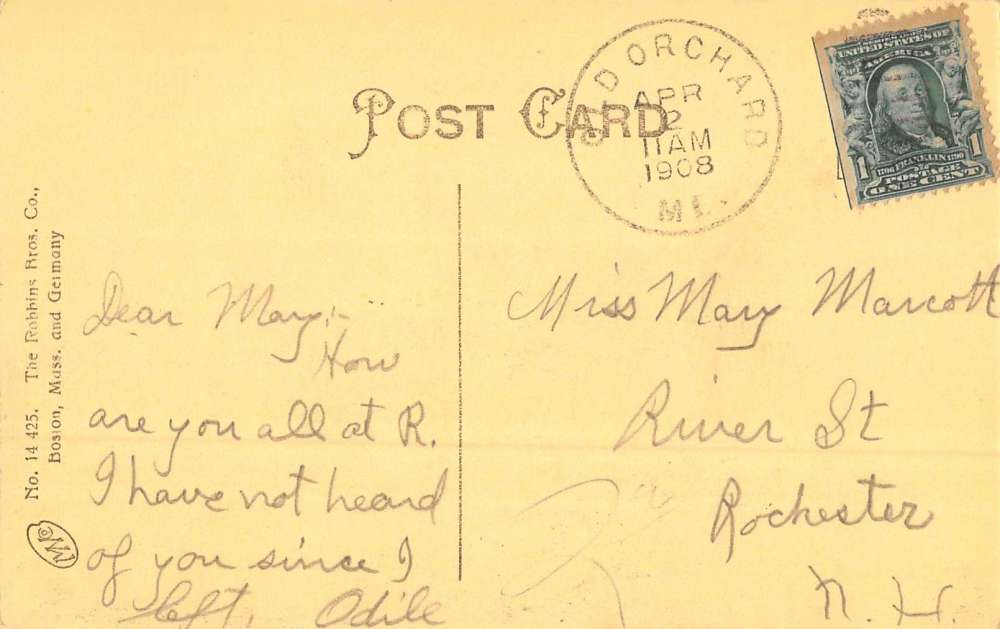 POST CARD
OLD ORCHARD
APR
2
11 AM
1908
ME.
UNITED STATES OF
AMERICA
1706 FRANKLIN 1790
1 1
POSTAGE
ONE CENT
No. 14 425. The Robbins Bros. Co.,
Boston, Mass. and Germany
Dear Mary:-
How
are you all at R.
I have not heard
of you since I
left, Odile
Miss Mary Marcott
River St
Rochester
N. H.